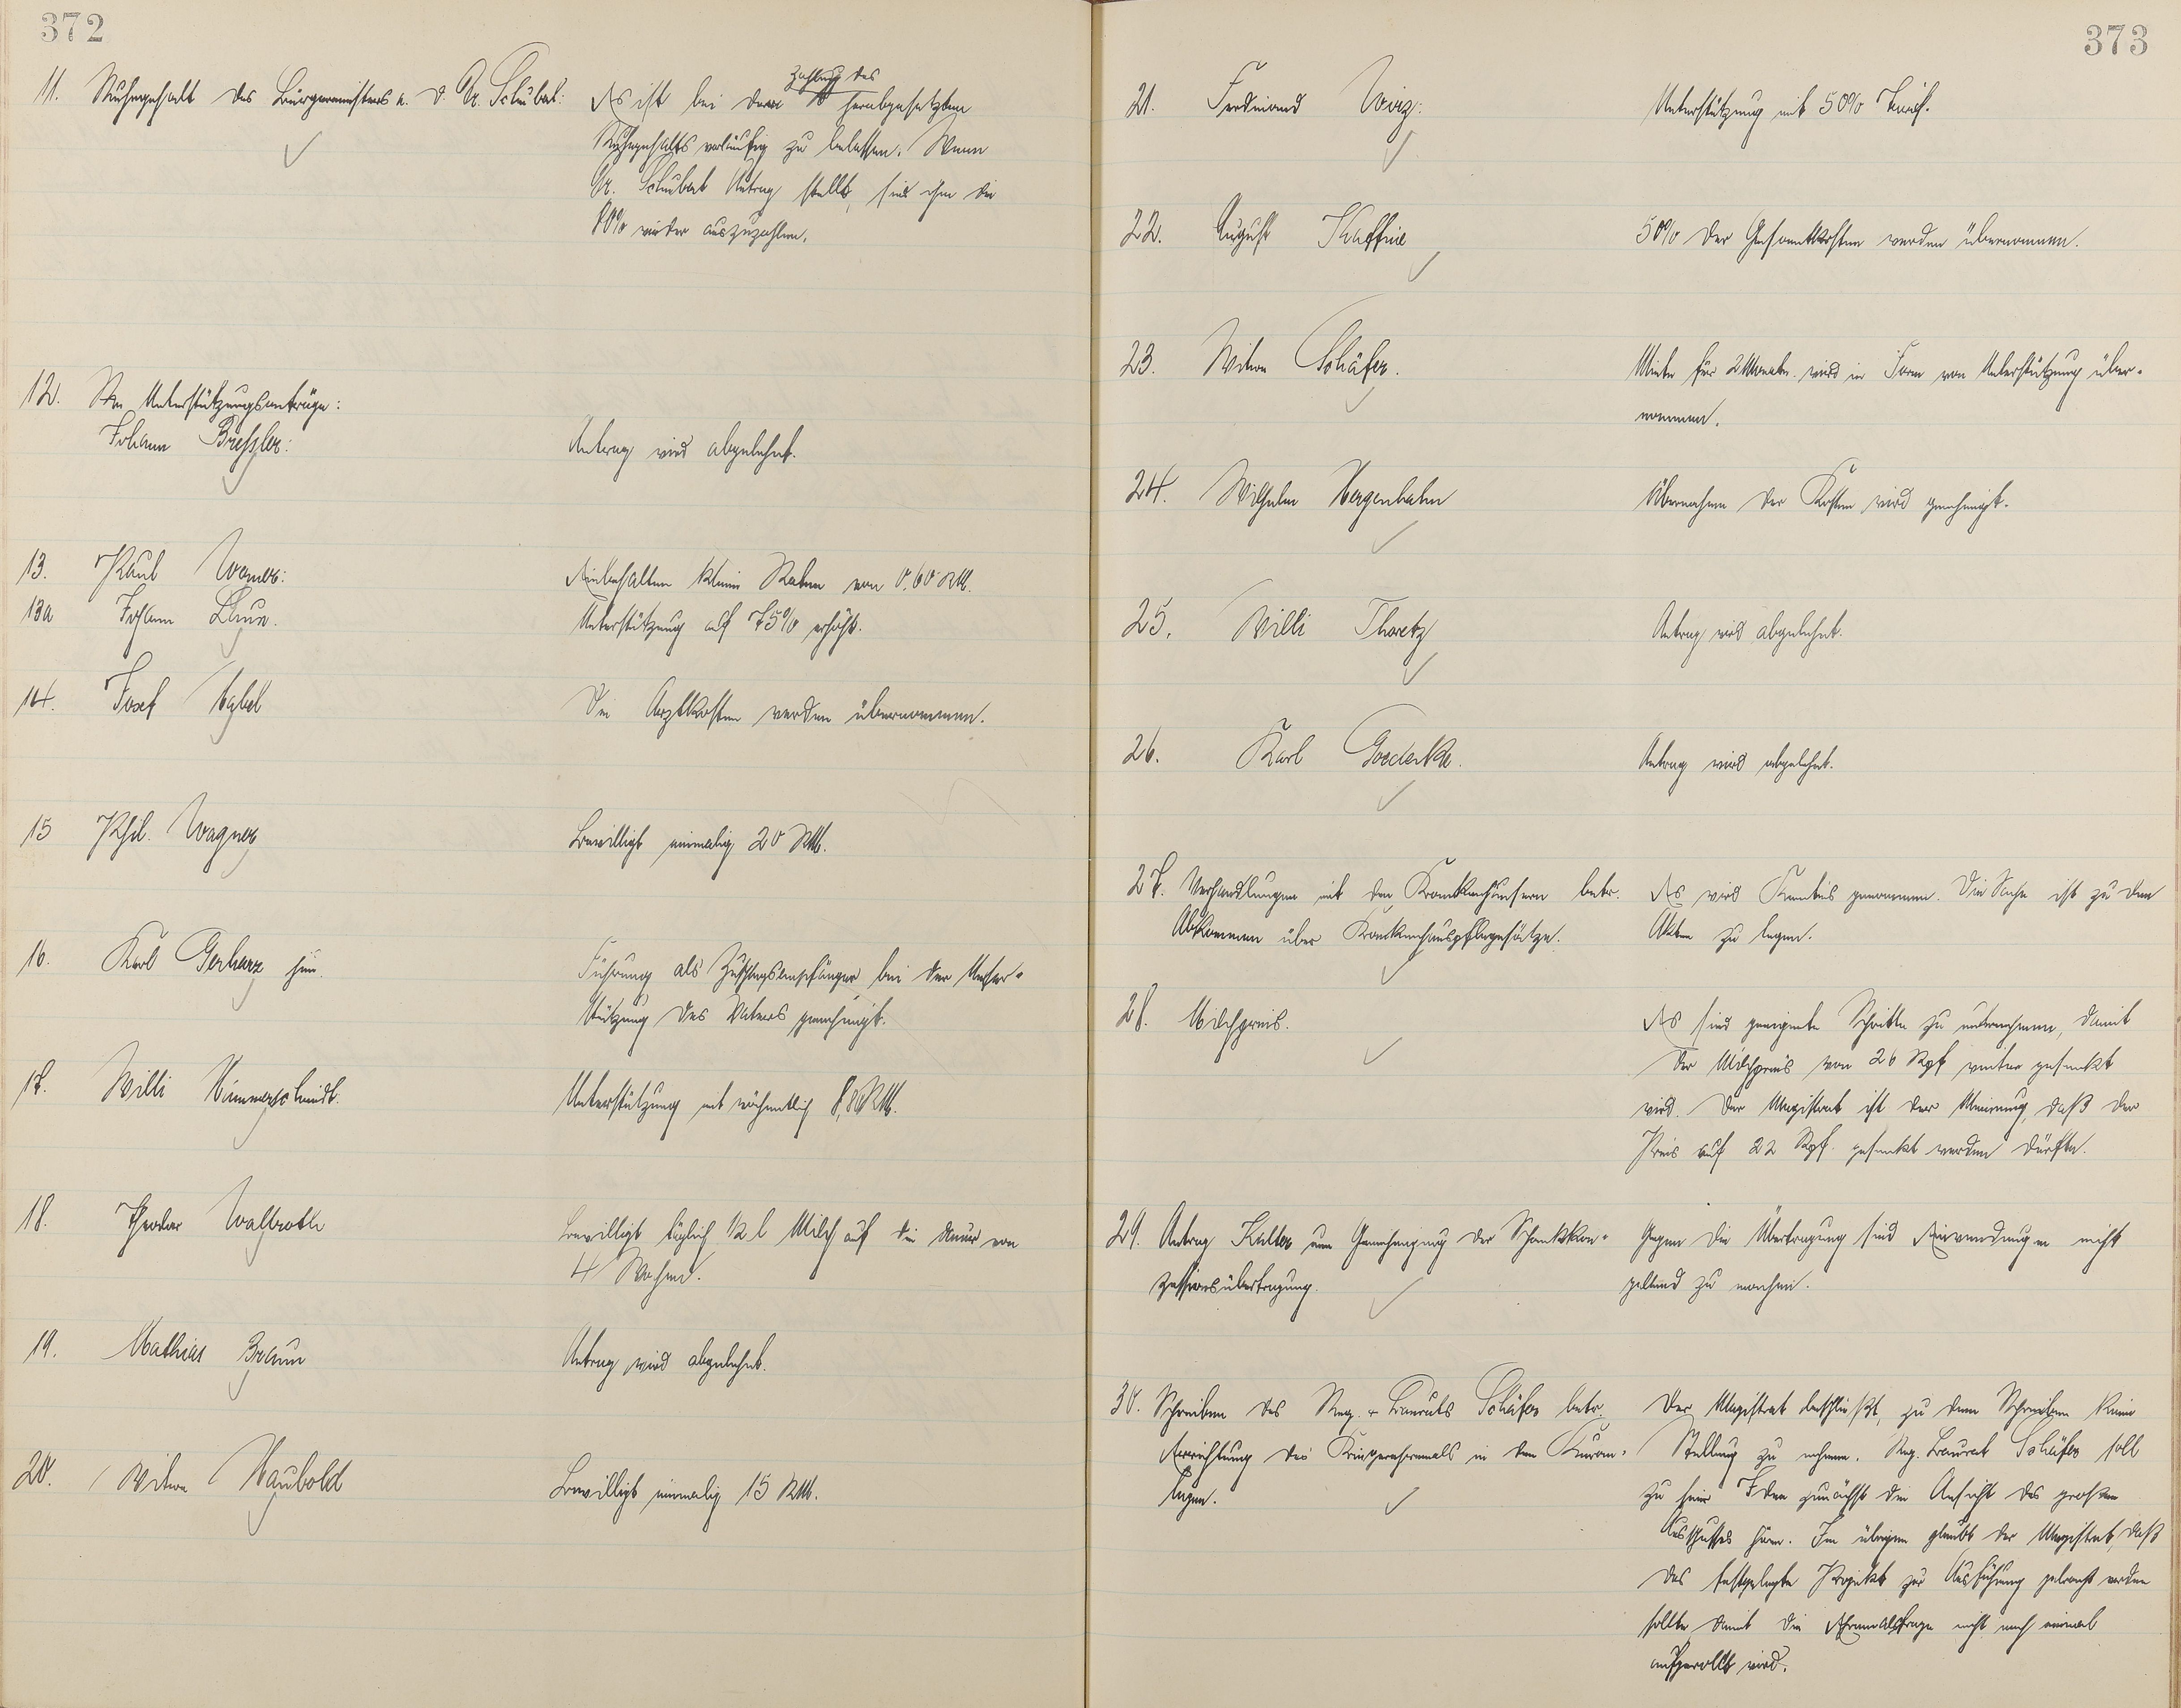 372
11. Ruhegehalt des Bürgermeisters a. D. Dr. Schubert:
Es ist bei der Zahlung des herabgesetzten
Ruhegehalts vorläufig zu belassen. Wenn
Dr. Schubert Antrag stellt, sind ihm die
80% wieder auszuzahlen.
12. Unterstützungsanträge:
Johann Bressler:
Antrag wird abgelehnt.
13. Paul Werner:
Einbehalten kleine Raten von 0,60 RM.
13a Johann Braun.
Unterstützung auf 75% erhöht.
14. Josef Nabel
Die Arztkosten werden übernommen.
15 Phil. Wagner
Bewilligt einmalig 20 RM.
16. Karl Gerharz jun.
Führung als Zuschlagsempfänger bei der Unter-
stützung des Vaters genehmigt.
17. Willi Hümmerschmidt.
Unterstützung mit wöchentlich 8,80 RM.
18. Theodor Wallroth
Bewilligt täglich 1/2 l Milch auf die Dauer von
4 Wochen.
19. Mathias Braun
Antrag wird abgelehnt.
20. Witwe Haubold
Bewilligt einmalig 15 RM.
373
21. Ferdinand Wirz:
Unterstützung mit 50% Tarif.
22. August Kaffine
50% der Gesamtkosten werden übernommen.
23. Witwe Schäfer.
Miete für 2 Monate wird in Form von Unterstützung über-
nommen.
24. Wilhelm Hergenhahn
Übernahme der Kosten wird genehmigt.
25. Willi Thoretz
Antrag wird abgelehnt.
26. Karl Goedecke.
Antrag wird abgelehnt.
27. Verhandlungen mit den Krankenhäusern betr.
Abkommen über Krankenhauspflegesätze.
Es wird Kenntnis genommen. Die Sache ist zu den
Akten zu legen.
28. Milchpreis.
Es sind geeignete Schritte zu unternehmen, damit
der Milchpreis von 26 Rpf weiter gesenkt
wird. Der Magistrat ist der Meinung, daß der
Preis auf 22 Rpf. gesenkt werden dürfte.
29. Antrag Kalter um Genehmigung der Schankkon-
zessionsübertragung.
Gegen die Übertragung sind Einwendungen nicht
geltend zu machen.
30. Schreiben des Reg.-Baurats Schäfer betr.
Errichtung des Kriegerehrenmals in den Kuran-
lagen.
Der Magistrat beschließt, zu dem Schreiben keine
Stellung zu nehmen. Reg. Baurat Schäfer soll
zu seiner Idee zunächst die Ansicht des großen
Ausschusses hören. Im übrigen glaubt der Magistrat, daß
das festgelegte Projekt zur Ausführung gebracht werden
sollte damit die Ehrenmalsfrage nicht noch einmal
aufgerollt wird.